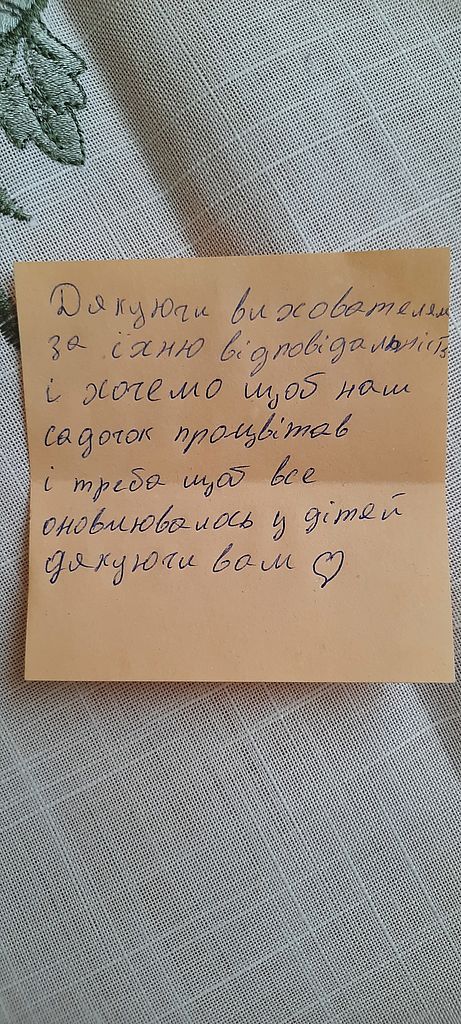 Дякуючи вихователям
за їхню відповідальність
і хочемо щоб наш
садочок процвітав
і треба щоб все
оновлювалось у дітей
дякуючи вам ♡